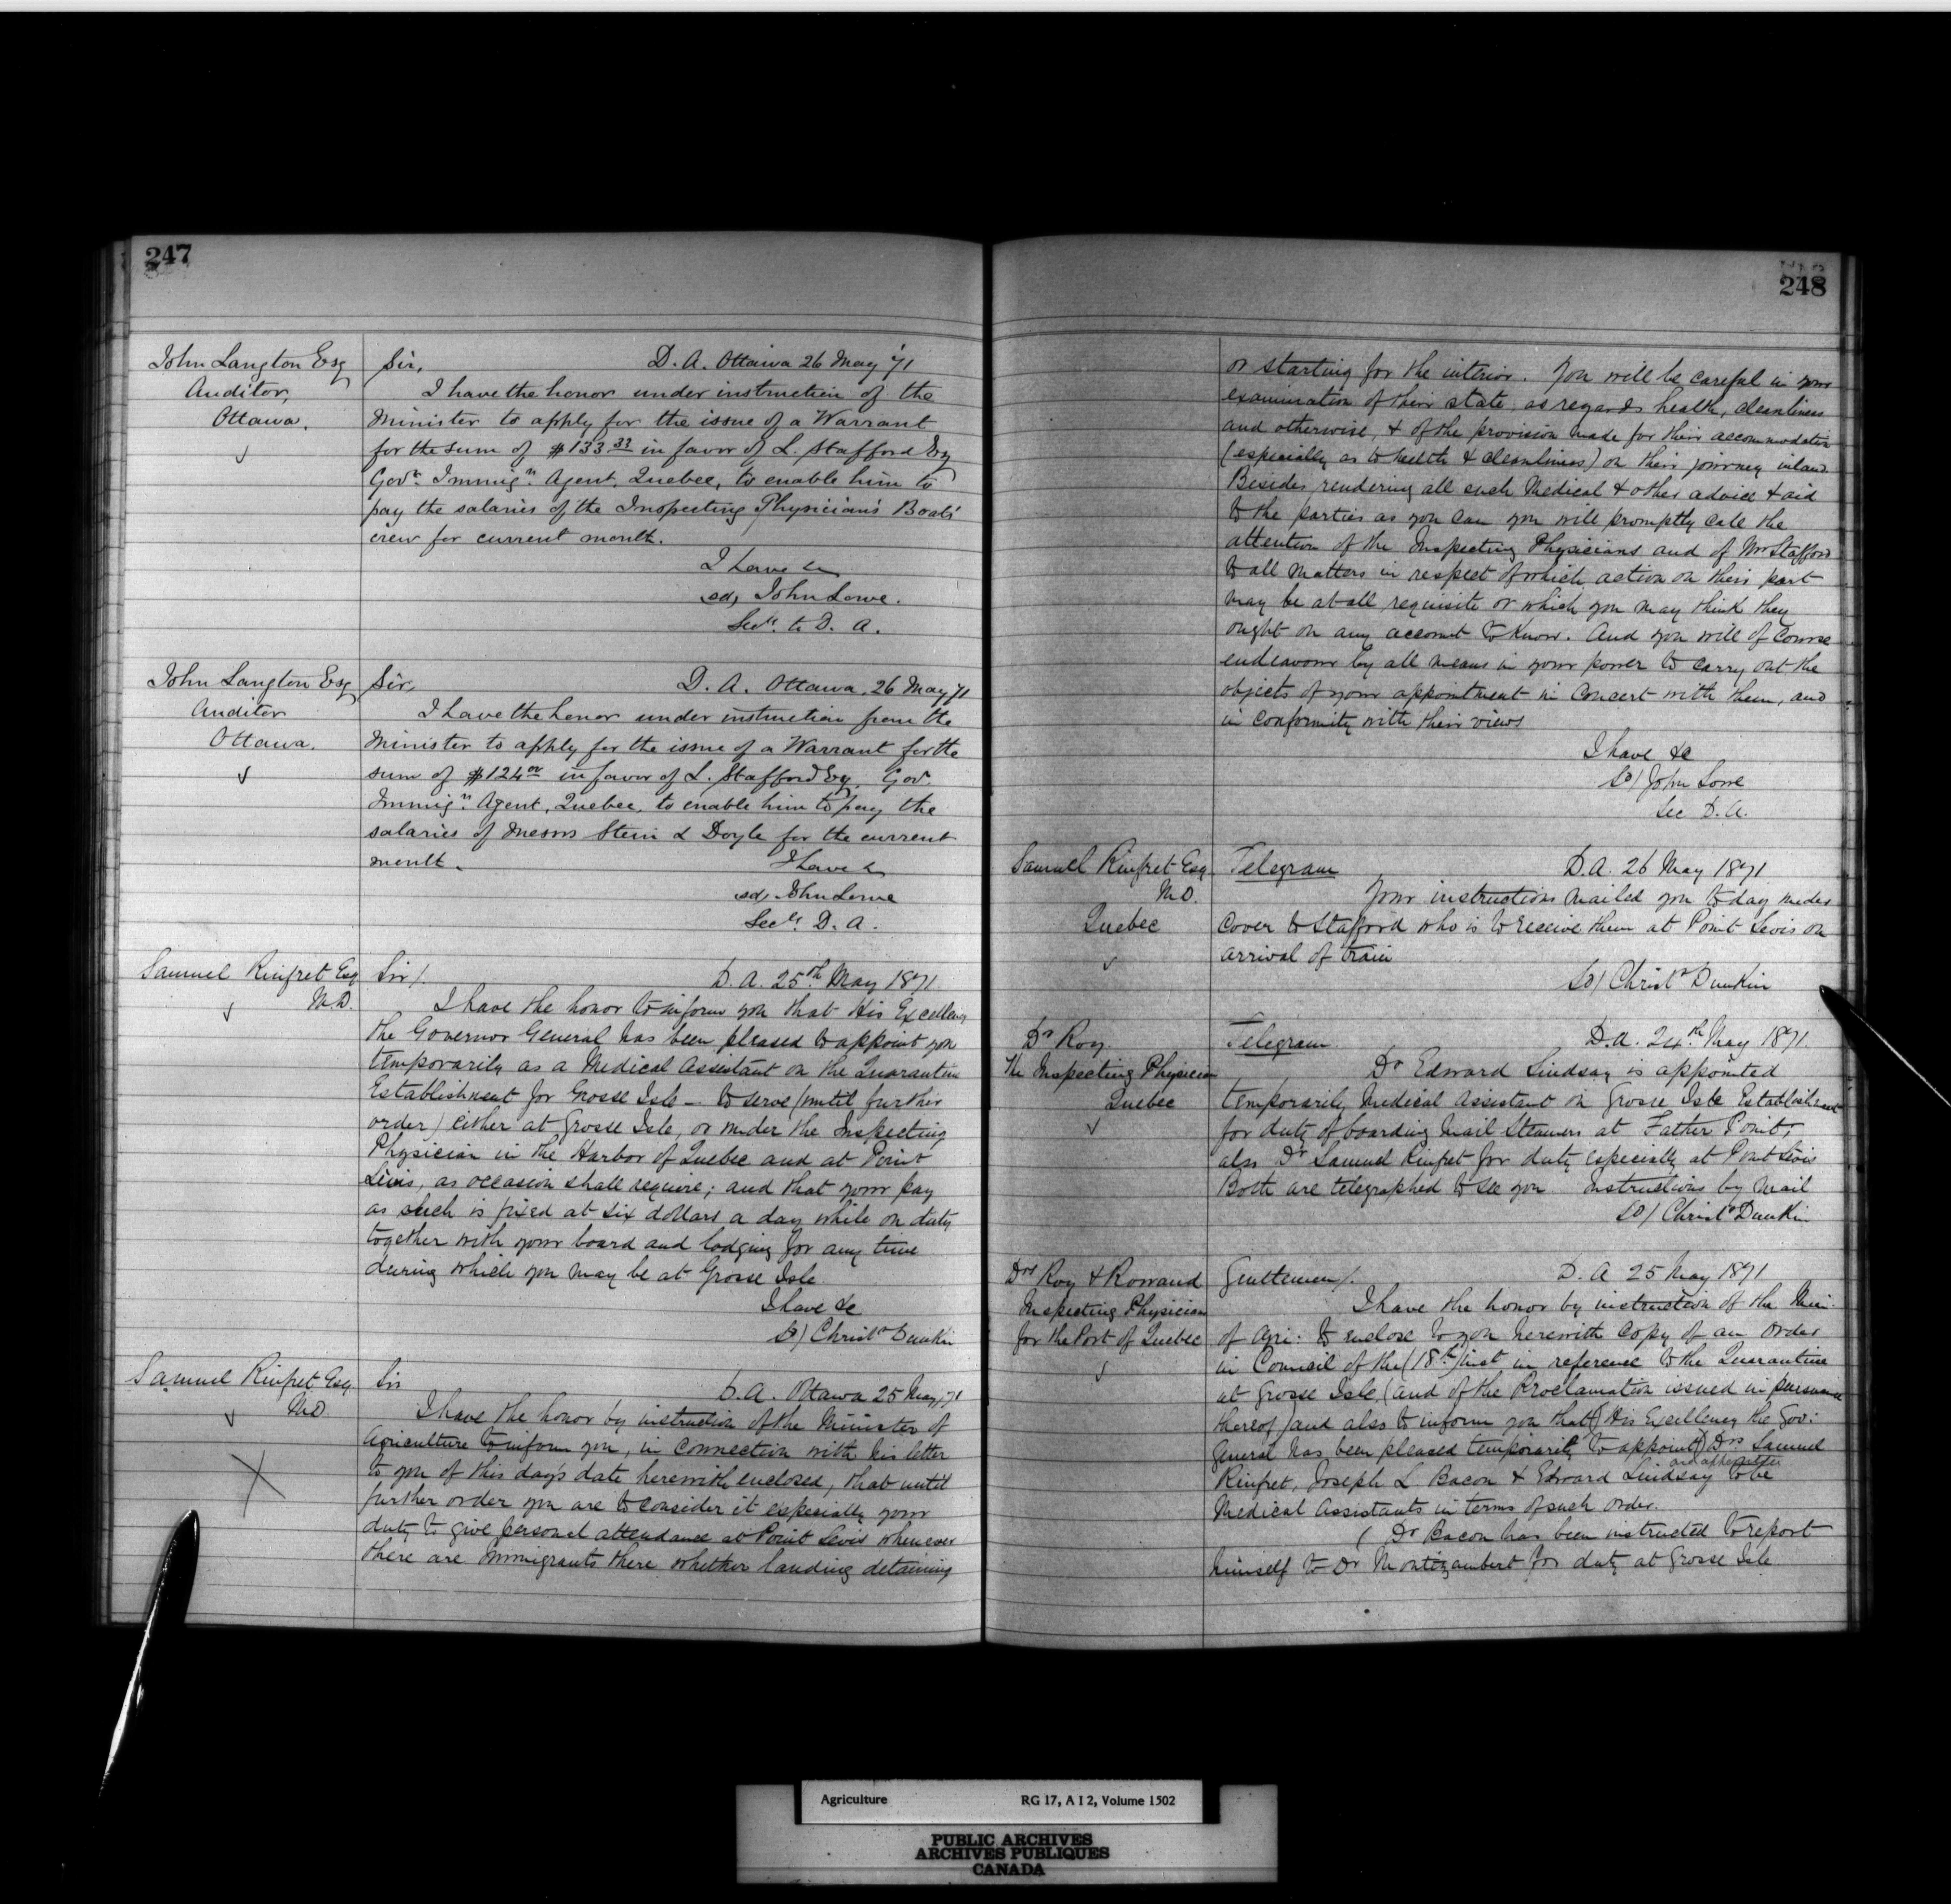 247
John Langton Esq
Auditor,
Ottawa.
Sir, D. A. Ottawa 26 May '71
I have the honor under instruction of the
Minister to apply for the issue of a Warrant
for the sum of $133 33 in favor of L. Stafford Esq
Govt. Immign. Agent, Quebec, to enable him to
pay the salaries of the Inspecting Physician's Boats'
crew for current month.
I have &c
sd, John Lowe.
Secy. to D. A.
John Langton Esq
Auditor
Ottawa.
Sir, D. A. Ottawa, 26 May 71
I have the honor under instruction from the
Minister to apply for the issue of a Warrant for the
sum of $124 00 in favor of L. Stafford Esq, Gov.
Immign. Agent, Quebec, to enable him to pay the
salaries of Messrs Stein & Doyle for the current
month.
I have &
sd, John Lowe
Secy. D. A.
Samuel Rinfret Esq
M.D.
Sir/. D. A. 25th May 1871
I have the honor to inform you that His Excellency
the Governor General has been pleased to appoint you
temporarily as a Medical Assistant on the Quarantine
Establishment for Grosse Isle – to serve (until further
order) either at Grosse Isle, or under the Inspecting
Physician in the Harbor of Quebec and at Point
Levis, as occasion shall require; and that your pay
as such is fixed at six dollars a day while on duty
together with your board and lodging for any time
during which you may be at Grosse Isle
I have &c
Sd/ Christr Dunkin
Samuel Rinfret Esq
M.D.
Sir D. A. Ottawa 25 May 71
I have the honor by instruction of the Minister of
Agriculture to inform you, in connection with his letter
to you of this day's date herewith enclosed, that until
further order you are to consider it especially your
duty to give personal attendance at Point Levis whenever
there are Immigrants there whether landing detaining
248
or starting for the interior. You will be careful in your
examination of their state as regards health, cleanliness
and otherwise, & of the provision made for their accommodation
(especially as to health & cleanliness) on their journey inland
Besides rendering all such Medical & other advice & aid
to the parties as you can you will promptly call the
attention of the Inspecting Physicians and of Mr Stafford
to all matters in respect of which action on their part
may be at all requisite or which you may think they
ought on any account to know. And you will of course
endeavour by all means in your power to carry out the
objects of your appointment in concert with them, and
in conformity with their views
I have &c
Sd/ John Lowe
Sec D. A.
Samuel Rinfret Esq
M.D.
Quebec
Telegram D. A. 26 May 1871
Your instructions mailed you today under
cover to Stafford who is to receive them at Point Levis on
arrival of train
Sd/ Christr Dunkin
Dr Roy.
The Inspecting Physician
Quebec
Telegram D. A. 24th May 1871.
Dr Edward Lindsay is appointed
temporarily Medical Assistant on Grosse Isle Establishment
for duty of boarding Mail Steamers at Father Point,
also Dr Samuel Rinfret for duty especially at Point Levis
Both are telegraphed to see you Instructions by mail
Sd/ Christr Dunkin
Drs Roy & Rowand
Inspecting Physician
for the Port of Quebec
Gentlemen/. D. A 25 May 1871
I have the honor by instruction of the Min.
of Agri: to enclose to you herewith copy of an Order
in Council of the (18th) inst in reference to the Quarantine
at Grosse Isle, (and of the Proclamation issued in pursuance
thereof) and also to inform you that) His Excellency the Gov:
General has been pleased temporarily to appoint) Drs Samuel
Rinfret, Joseph L Bacon & Edward Lindsay to be
Medical Assistants in terms of such order.
( Dr Bacon has been instructed to report
himself to Dr Montizambert for duty at Grosse Isle
Agriculture RG 17, A I 2, Volume 1502
PUBLIC ARCHIVES
ARCHIVES PUBLIQUES
CANADA